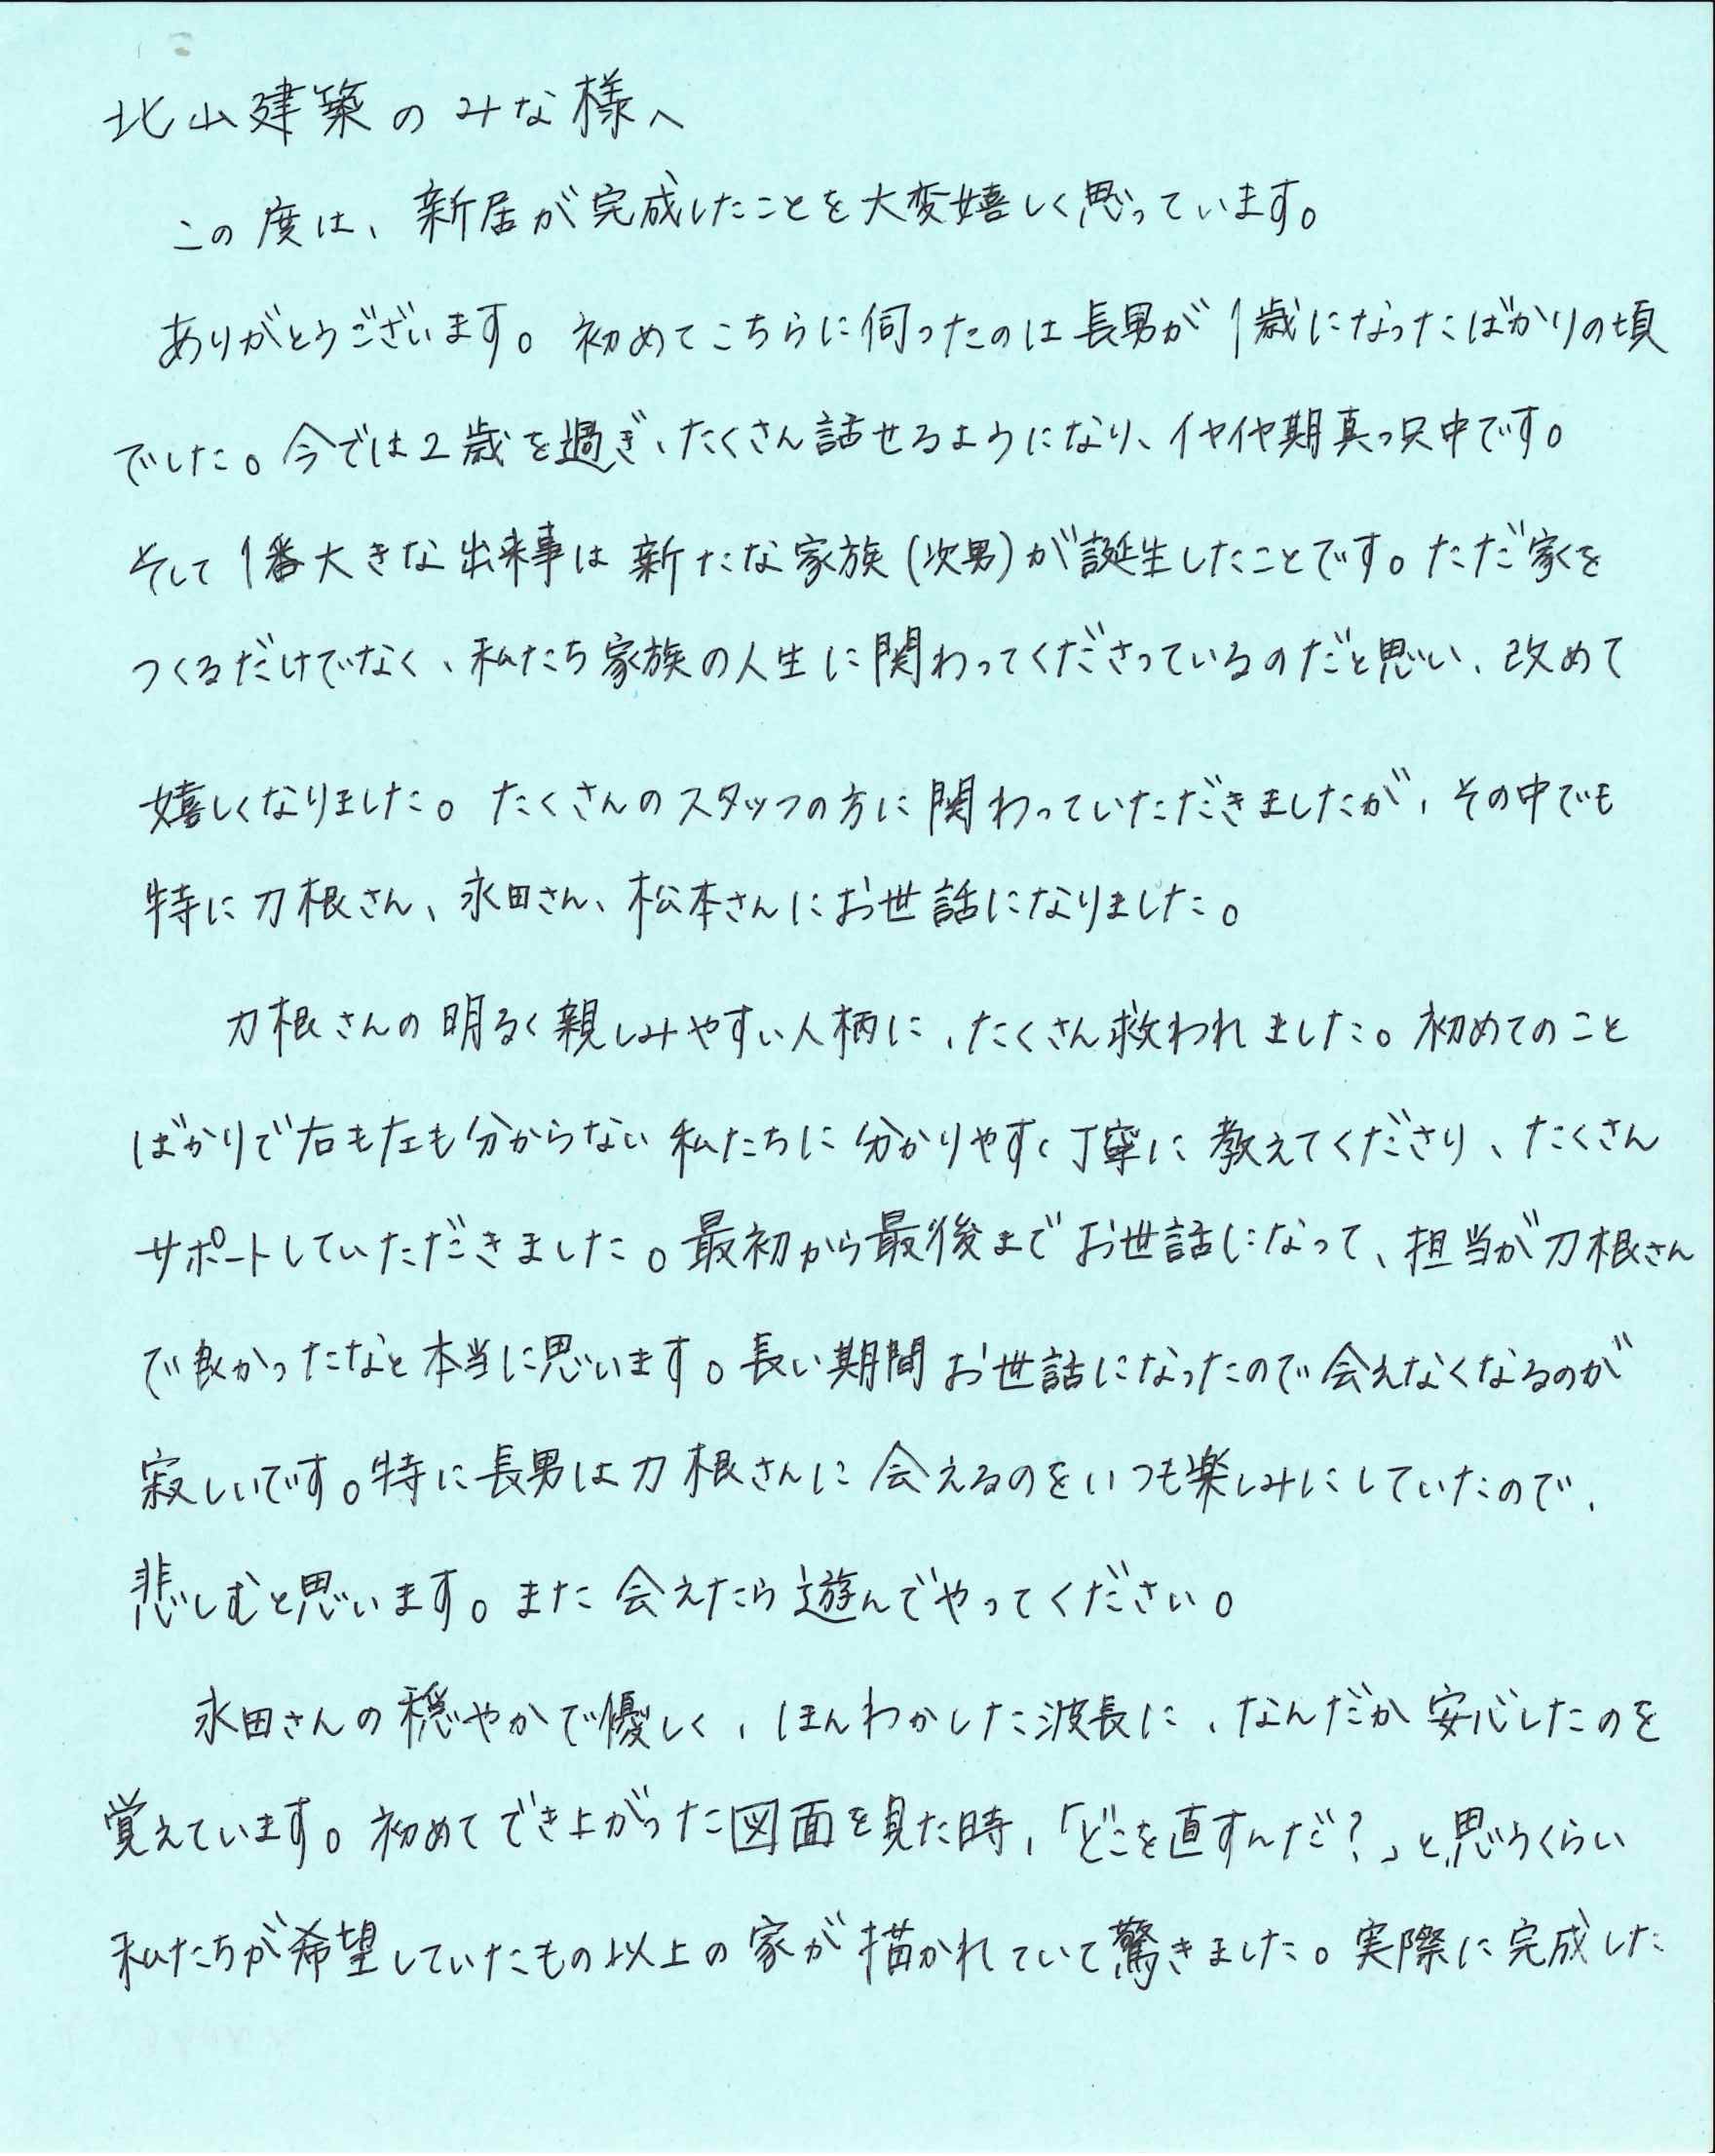 北山建築のみな様へ
この度は、新居が完成したことを大変嬉しく思っています。
ありがとうございます。初めてこちらに伺ったのは長男が1歳になったばかりの頃
でした。今では2歳を過ぎ、たくさん話せるようになり、イヤイヤ期真っ只中です。
そして1番大きな出来事は新たな家族(次男)が誕生したことです。ただ家を
つくるだけでなく、私たち家族の人生に関わってくださっているのだと思い、改めて
嬉しくなりました。たくさんのスタッフの方に関わっていただきましたが、その中でも
特に刀根さん、永田さん、松本さんにお世話になりました。
刀根さんの明るく親しみやすい人柄に、たくさん救われました。初めてのこと
ばかりで右も左も分からない私たちに分かりやすく丁寧に教えてくださり、たくさん
サポートしていただきました。最初から最後までお世話になって、担当が刀根さん
で良かったなと本当に思います。長い期間お世話になったので会えなくなるのが
寂しいです。特に長男は刀根さんに会えるのをいつも楽しみにしていたので、
悲しむと思います。また会えたら遊んでやってください。
永田さんの穏やかで優しく、ほんわかした波長に、なんだか安心したのを
覚えています。初めてでき上がった図面を見た時、「どこを直すんだ?」と思うくらい
私たちが希望していたもの以上の家が描かれていて驚きました。実際に完成した